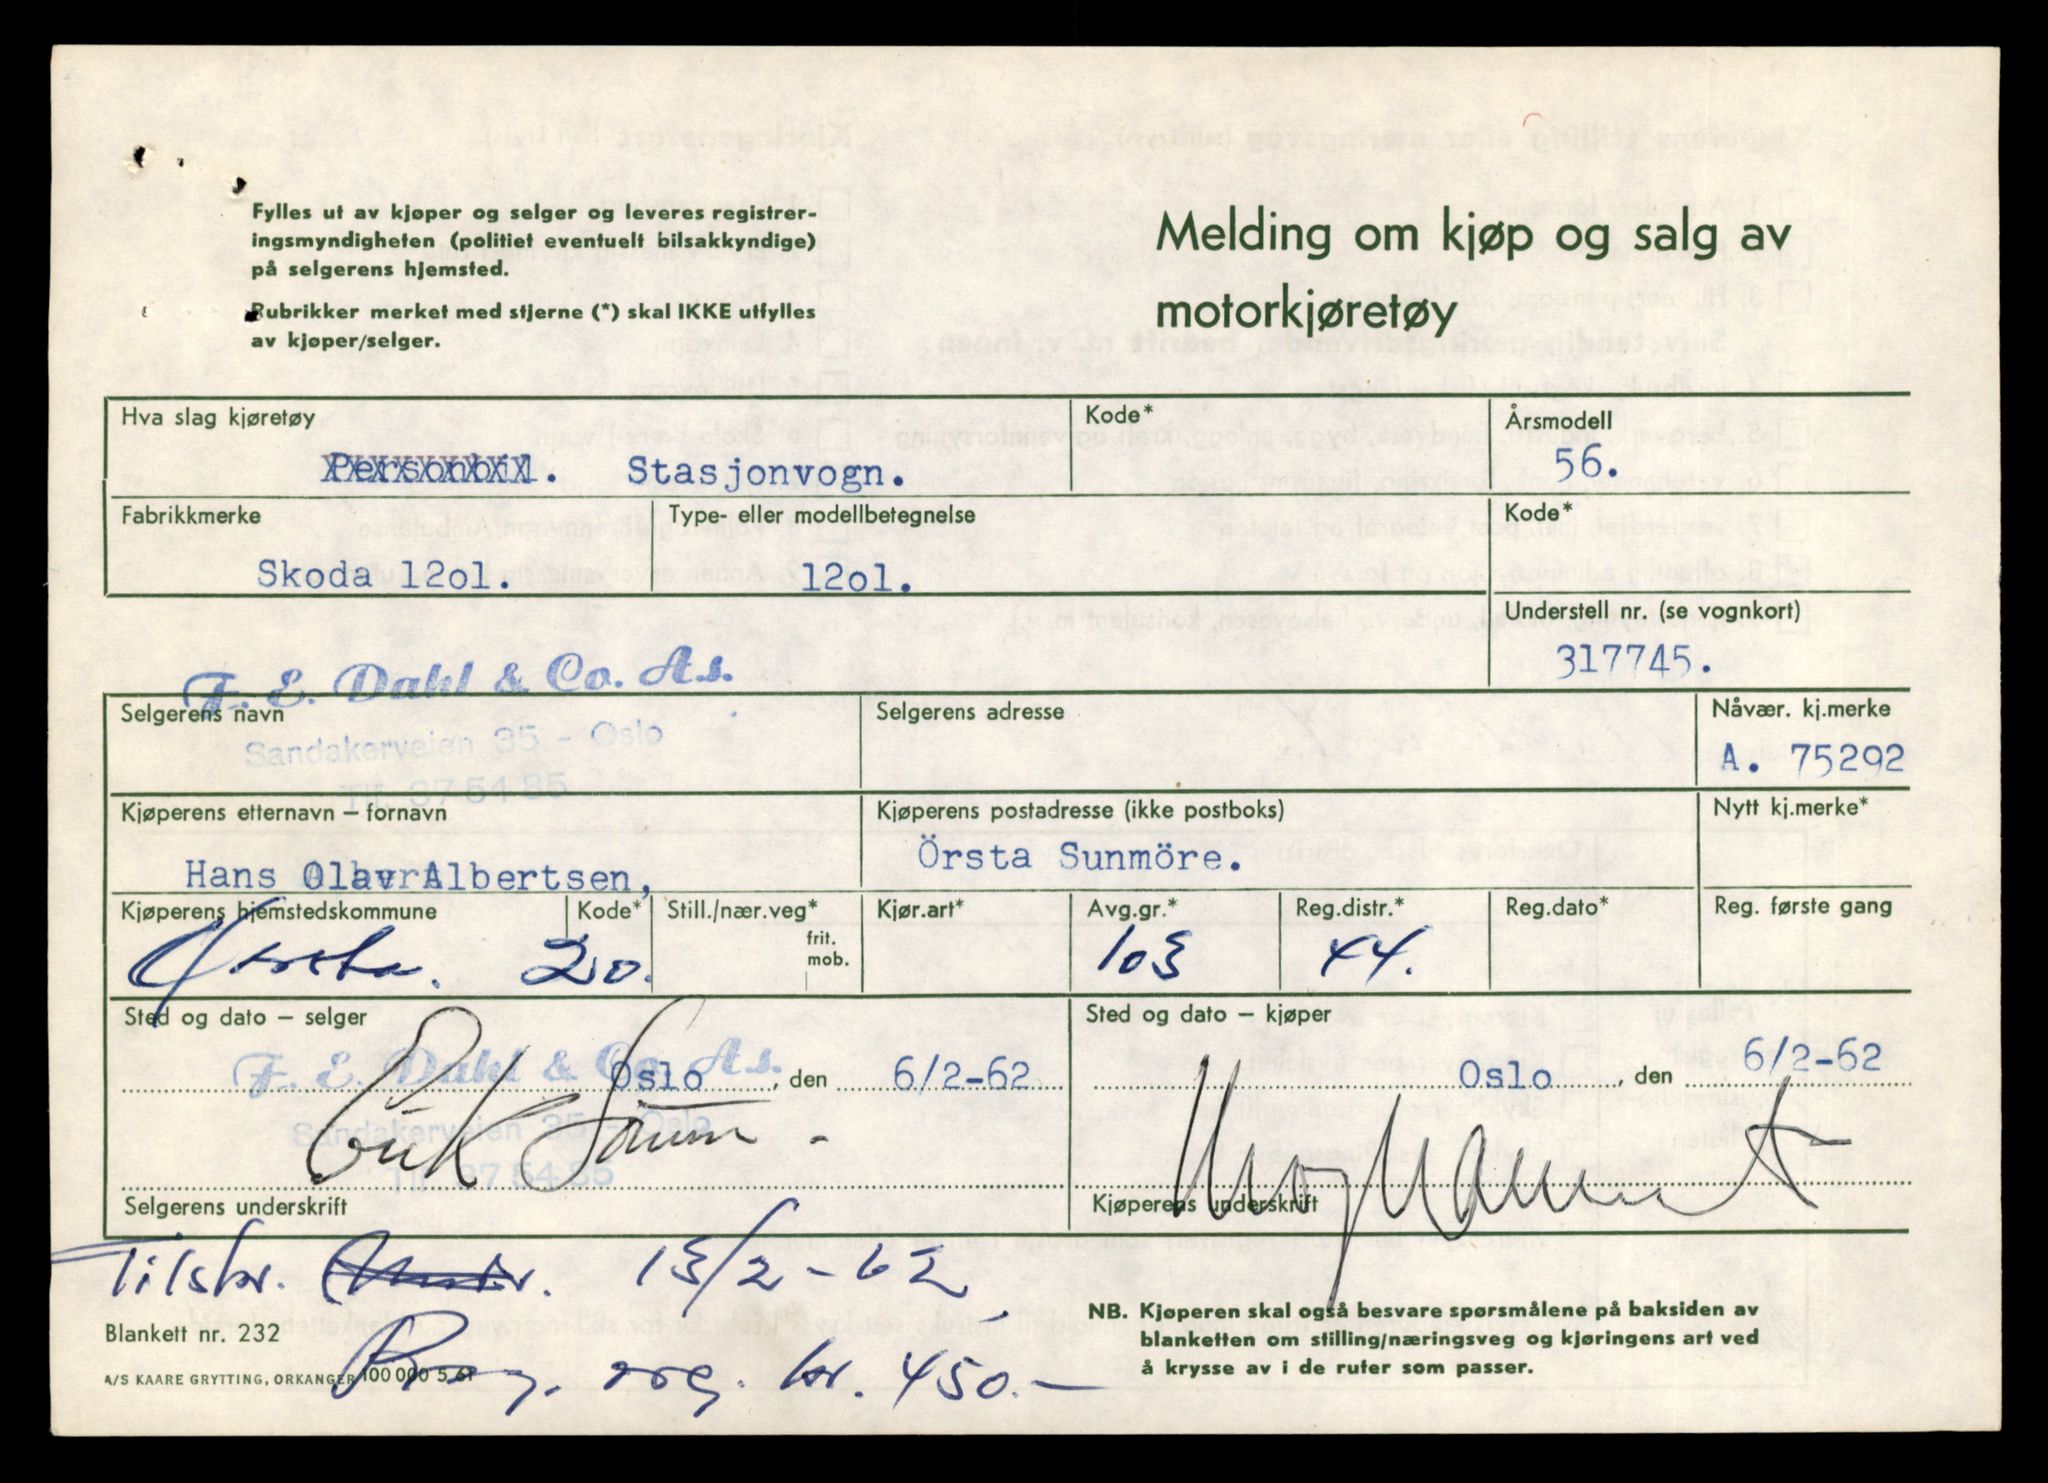 Fylles ut av kjøper og selger og leveres registrer-
ingsmyndigheten (politiet eventuelt bilsakkyndige)
på selgerens hjemsted.
Rubrikker merket med stjerne (*) skal IKKE utfylles
av kjøper/selger.
Melding om kjøp og salg av
motorkjøretøy
Hva slag kjøretøy
Personbil. Stasjonvogn.
Kode*
Årsmodell
56.
Fabrikkmerke
Skoda 12ol.
Type- eller modellbetegnelse
12ol.
Kode*
Understell nr. (se vognkort)
317745.
F. E. Dahl & Co. A.s.
Sandakerveien 35 - Oslo
Tlf. 37 54 85
Selgerens navn
Selgerens adresse
Nåvær. kj.merke
A. 75292
Kjøperens etternavn – fornavn
Hans Olav Albertsen,
Kjøperens postadresse (ikke postboks)
Örsta Sunmöre.
Nytt kj.merke*
Kjøperens hjemstedskommune
Ørsta.
Kode*
20.
Still./nær.veg*
frit.
mob.
Kjør.art*
Avg.gr.*
103
Reg.distr.*
44.
Reg.dato*
Reg. første gang
Sted og dato – selger
F. E. Dahl & Co. A.s.
Oslo, den 6/2-62
Sandakerveien 35 - Oslo
Tlf. 37 54 85
Selgerens underskrift
Sted og dato – kjøper
Oslo, den 6/2-62
Kjøperens underskrift
Tilskr. 13/2-62
org. kr. 450.-
Blankett nr. 232
A/S KAARE GRYTTING, ORKANGER 100 000 5 61
NB. Kjøperen skal også besvare spørsmålene på baksiden av
blanketten om stilling/næringsveg og kjøringens art ved
å krysse av i de ruter som passer.